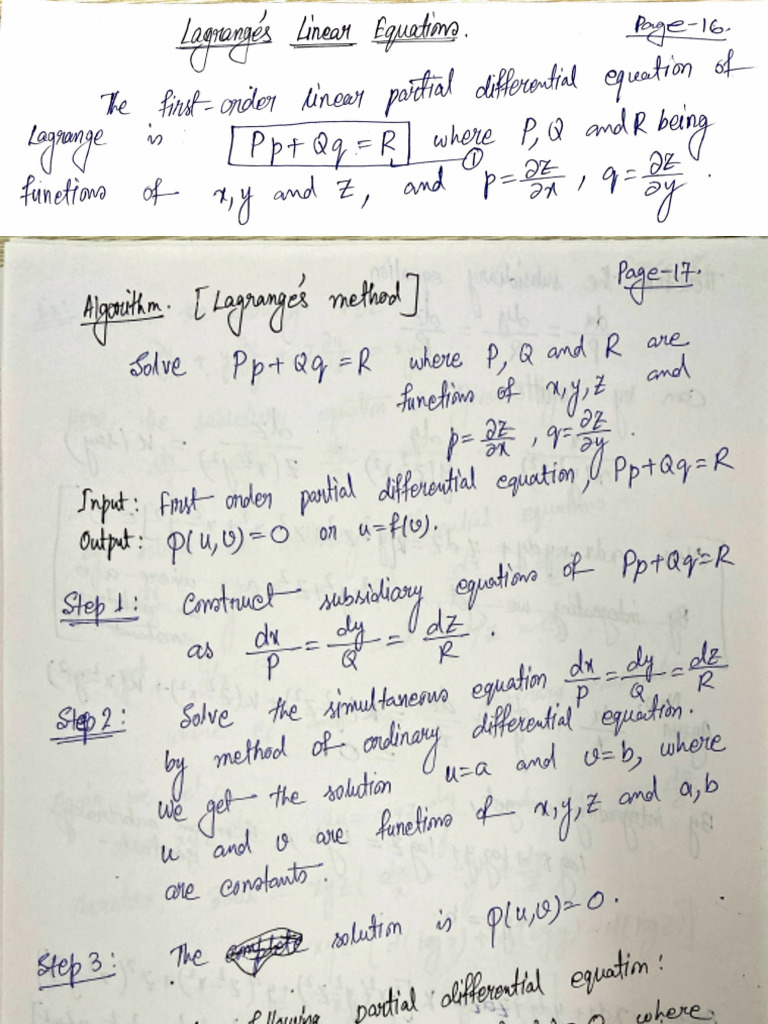 Lagrange's Linear Equations. Page-16.
The first-order linear partial differential equation of
Lagrange is Pp+Qq=R where P, Q and R being
①
functions of x,y and z, and p=∂z/∂x, q=∂z/∂y.
Page-17.
Algorithm. [Lagrange's method]
Solve Pp+Qq=R where P, Q and R are
functions of x,y,z and
p=∂z/∂x, q=∂z/∂y.
Input: First order partial differential equation, Pp+Qq=R
Output: φ(u,v)=0 or u=f(v).
Step 1: Construct subsidiary equations of Pp+Qq=R
as dx/P = dy/Q = dz/R.
Step 2: Solve the simultaneous equation dx/P = dy/Q = dz/R
by method of ordinary differential equation.
We get the solution u=a and v=b, where
u and v are functions of x,y,z and a,b
are constants.
Step 3: The solution is φ(u,v)=0.
following partial differential equation:
where